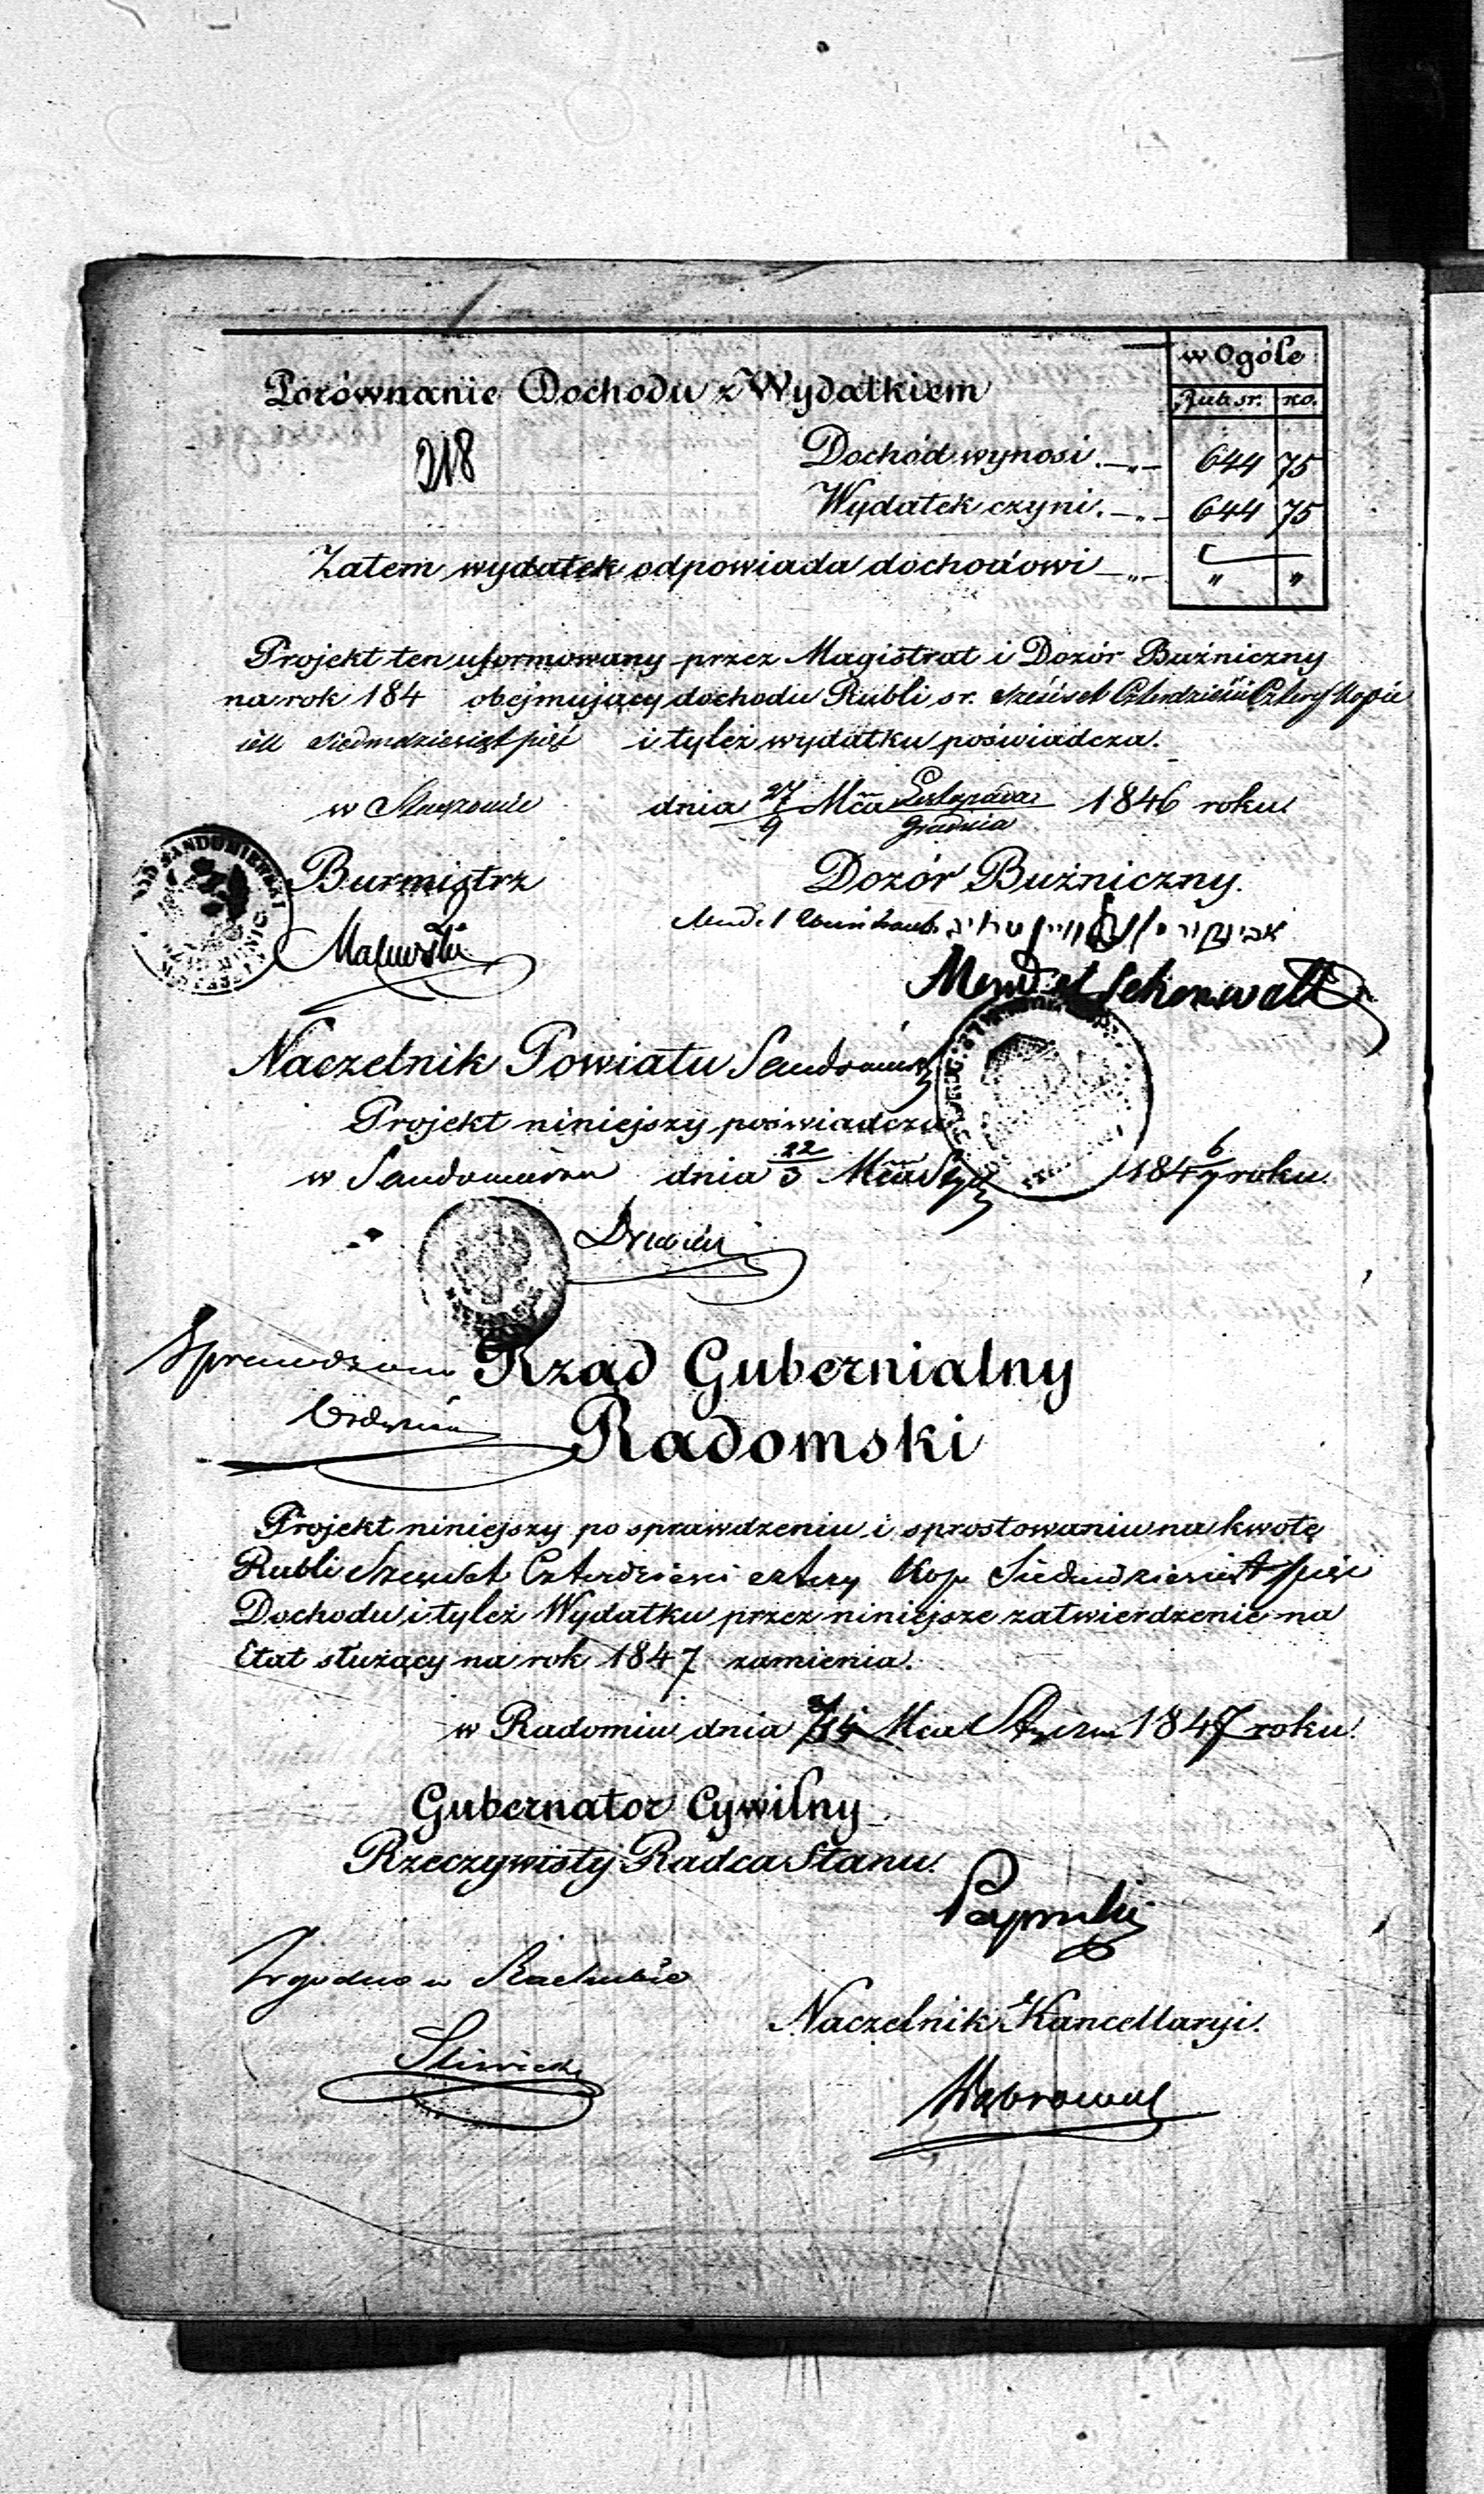 w Ogóle
Rub. sr. ko.
Porównanie Dochodu z Wydatkiem
218
Dochód wynosi. 644 75
Wydatek czyni. 644 75
Zatem wydatek odpowiada dochodowi " "
Projekt ten uformowany przez Magistrat i Dozór Bużniczny
na rok 184 obejmujący dochodu Rubli sr. Sześćset Czterdzieści Cztery Kopie
iek Siedmdziesiąt pięć i tyleż wydatku poświadcza.
w Staszowie dnia 27/9 Mca Listopada/Grudnia 1846 roku.
Burmistrz Dozór Bużniczny.
Malewski
Mendel
Naczelnik Powiatu Sandomirsk
Projekt niniejszy poświadcza
w Sandomierzu dnia 22/3 Mca 1846/7 roku.
Sprawdzono
Rząd Gubernialny
Radomski
Projekt niniejszy po sprawdzeniu i sprostowaniu na kwotę
Rubli Sześćset Czterdzieści cztery Kop. Siedmdziesiąt pięć
Dochodu i tyleż Wydatku przez niniejsze zatwierdzenie na
Etat służący na rok 1847 zamienia.
w Radomiu dnia Mca Styczn 1847 roku.
Gubernator Cywilny
Rzeczywisty Radca Stanu.
Zgodno w Rachubie
Naczelnik Kancellaryi.
Sliwicki